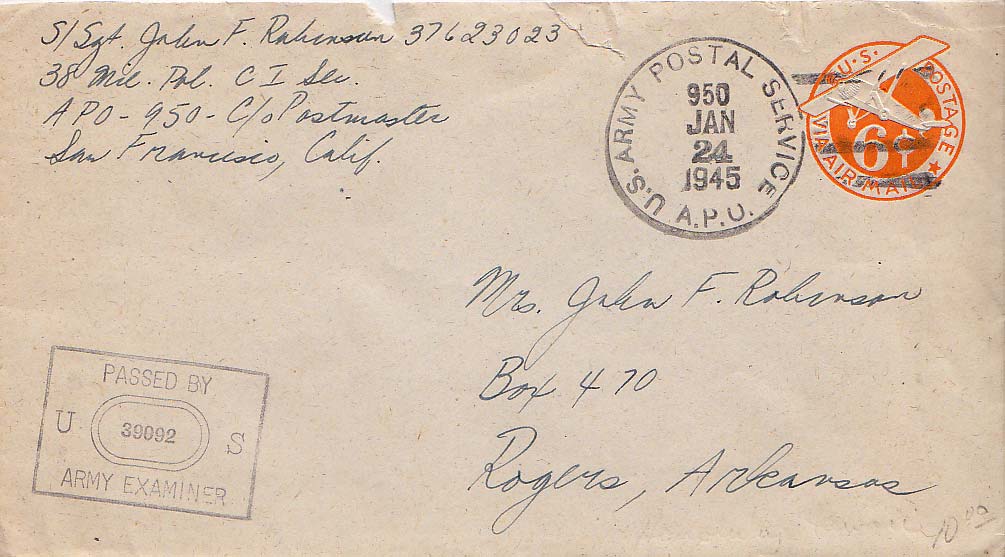 S/Sgt. John F. Robinson 37623023
38 Mil. Pol. C I Sec.
APO - 950 - C/o Postmaster
San Francisco, Calif.
U.S. ARMY POSTAL SERVICE
A.P.O.
950
JAN
24
1945
U.S. POSTAGE
VIA AIR MAIL
6¢
Mrs. John F. Robinson
Box 470
Rogers, Arkansas
PASSED BY
U 39092 S
ARMY EXAMINER
10 00